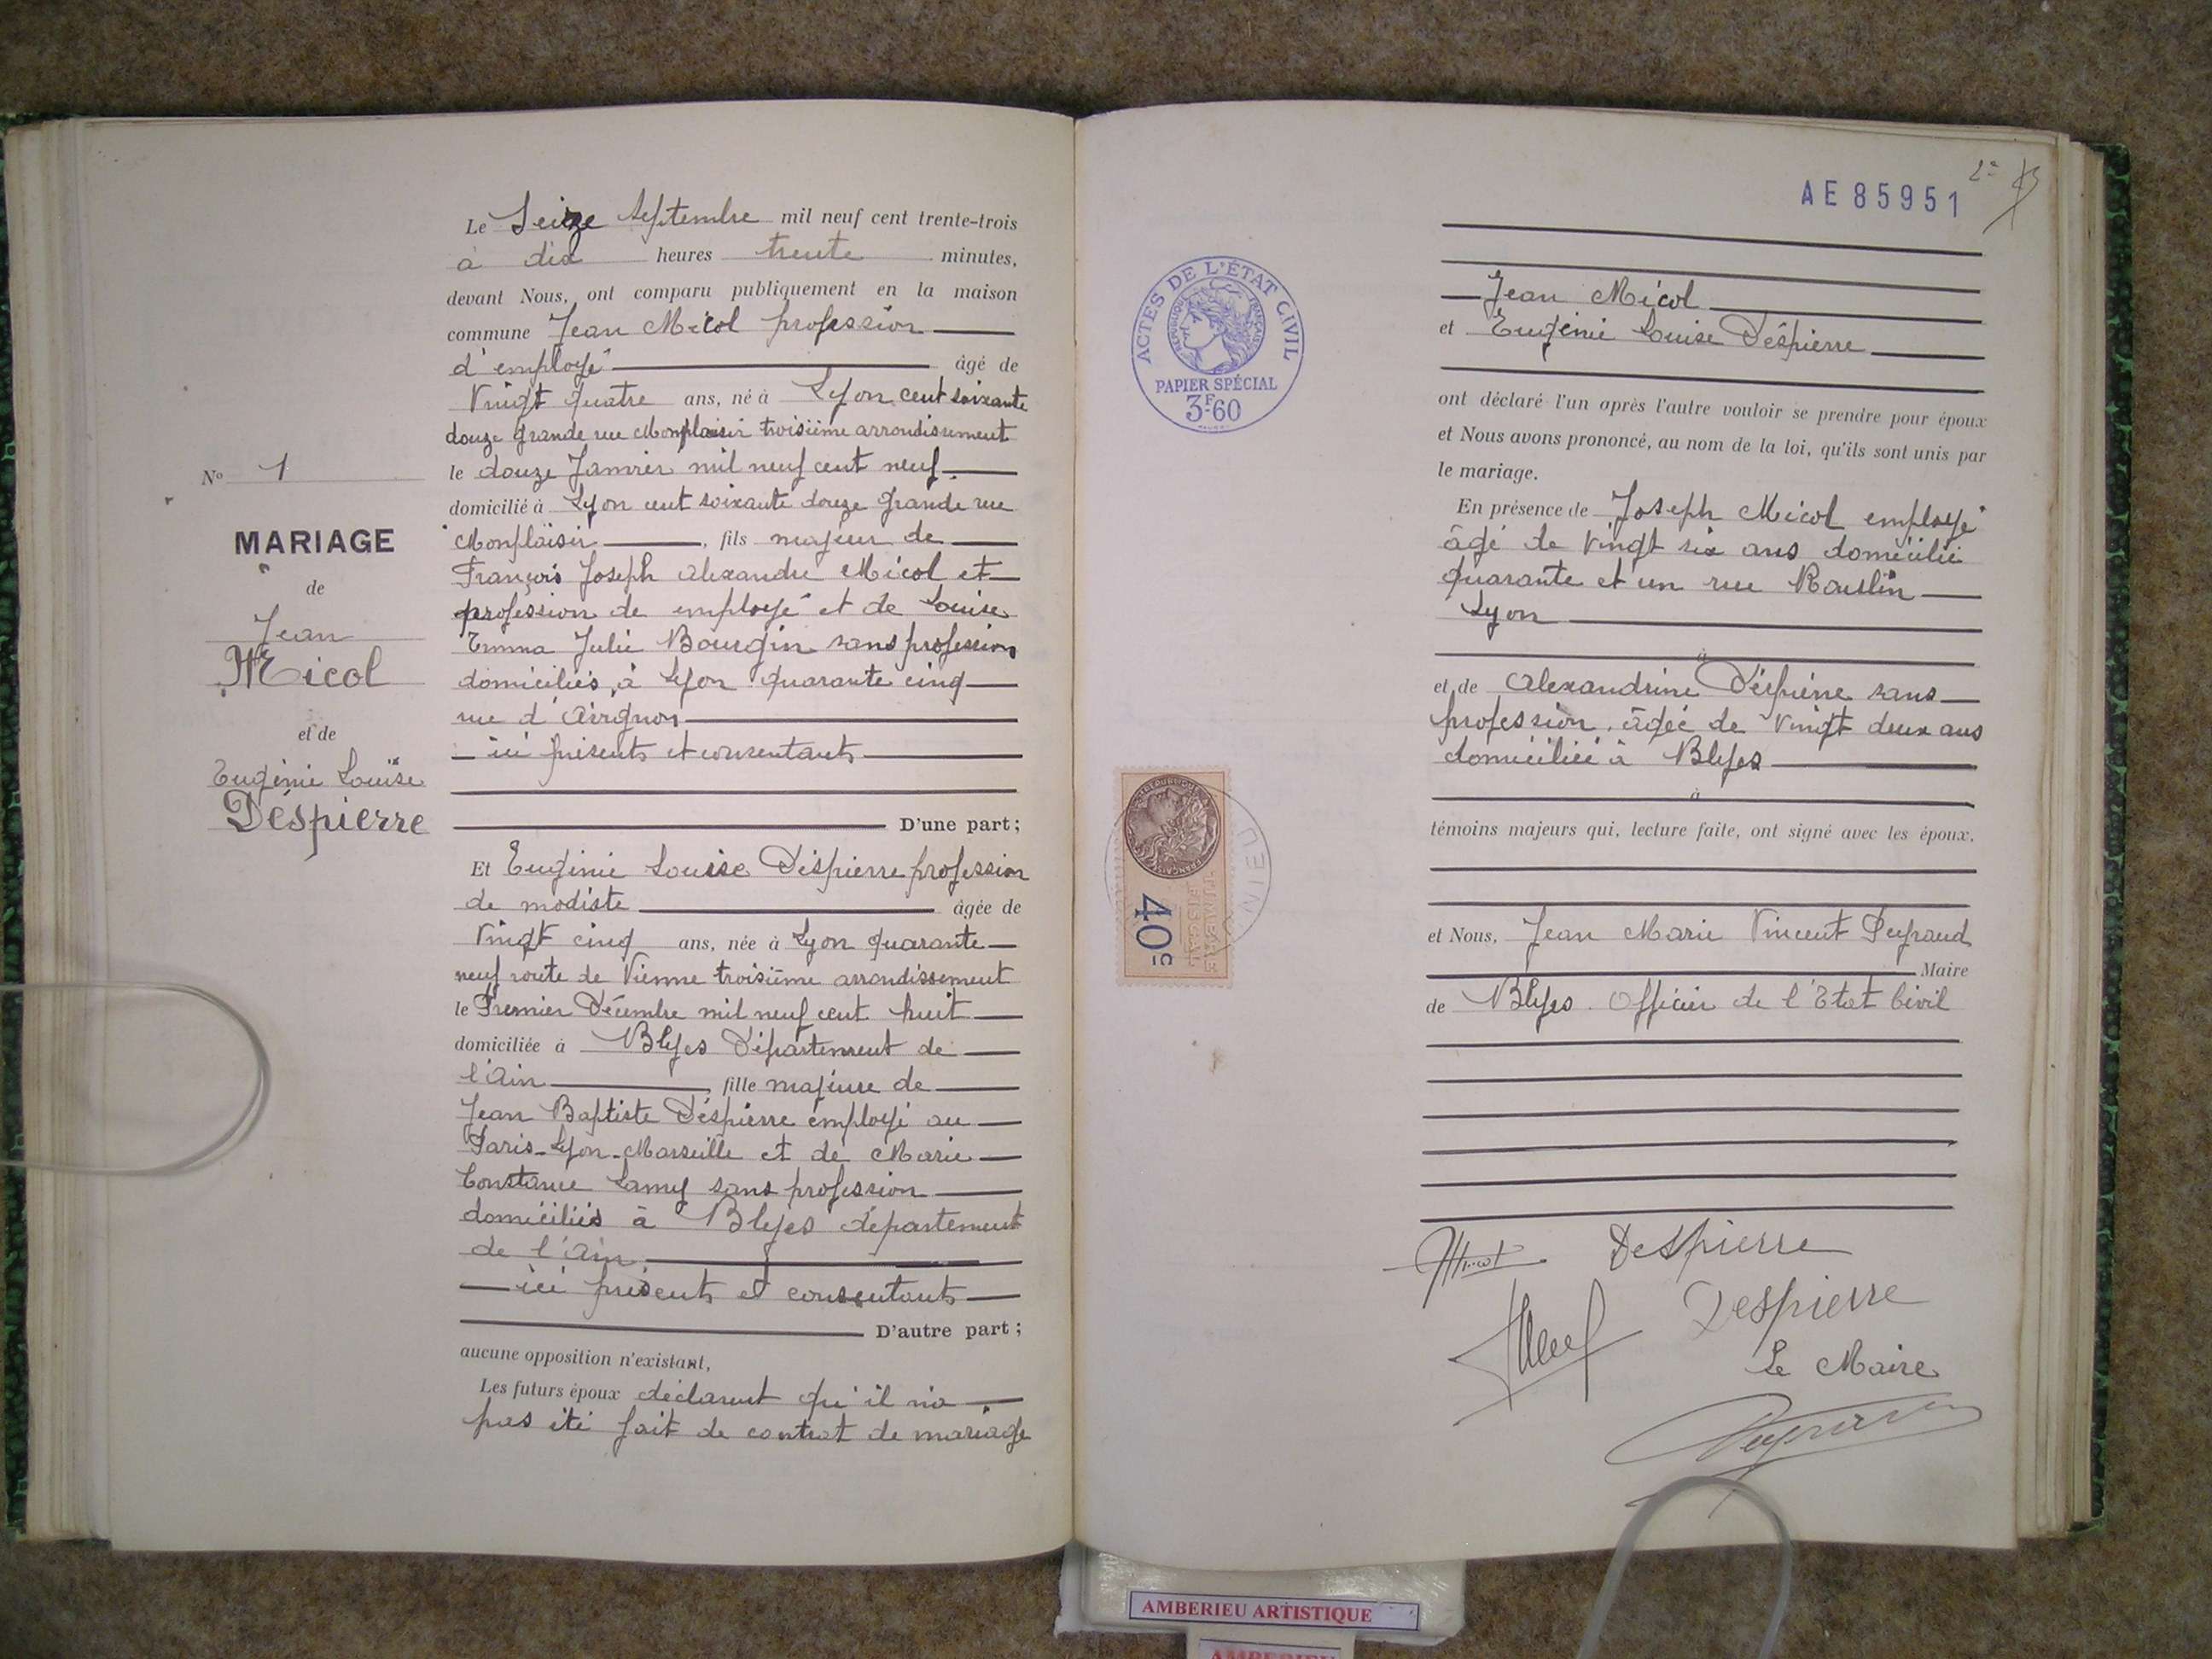 Le Seize Septembre mil neuf cent trente-trois
à dix heures trente minutes,
devant Nous, ont comparu publiquement en la maison
commune Jean Micol profession
d'employé âgé de
Vingt quatre ans, né à Lyon cent soixante
douze grande rue Monplaisir troisième arrondissement
le douze Janvier mil neuf cent neuf
domicilié à Lyon cent soixante douze grande rue
Monplaisir, fils majeur de
François Joseph Alexandre Micol et
profession de employé et de Louise
Emma Julie Bourgin sans profession
domiciliés à Lyon quarante cinq
rue d'Avignon
ici présents et consentants
D'une part;
Et Eugénie Louise Déspierre profession
de modiste âgée de
Vingt cinq ans, née à Lyon quarante
neuf route de Vienne troisième arrondissement
le Premier Décembre mil neuf cent huit
domiciliée à Blyes Département de
l'Ain, fille majeure de
Jean Baptiste Déspierre émployé au
Paris-Lyon-Marseille et de Marie
Constance Lamy sans profession
domiciliés à Blyes département
de l'Ain
ici présents et consentants
D'autre part;
aucune opposition n'existant,
Les futurs époux déclarent qu'il n'a
pas été fait de contrat de mariage
No 1
MARIAGE
de
Jean
Micol
et de
Eugénie Louise
Déspierre
AE85951
ACTES DE L'ÉTAT CIVIL
RÉPUBLIQUE FRANÇAISE
PAPIER SPÉCIAL
3F60
Jean Micol
et Eugénie Louise Déspierre
ont déclaré l'un après l'autre vouloir se prendre pour époux
et Nous avons prononcé, au nom de la loi, qu'ils sont unis par
le mariage.
En présence de Joseph Micol employé
âgé de Vingt six ans domicilié
quarante et un rue Roullin
Lyon
à
et de Alexandrine Déspierre sans
profession, âgée de Vingt deux ans
domiciliée à Blyes
à
témoins majeurs qui, lecture faite, ont signé avec les époux.
et Nous, Jean Marie Vincent Peyraud
Maire
de Blyes. Officier de l'Etat Civil
TIMBRE
FISCAL
40c
Micol Despierre
Despierre
Le Maire
Peyraud
AMBERIEU ARTISTIQUE
AMBERIEU